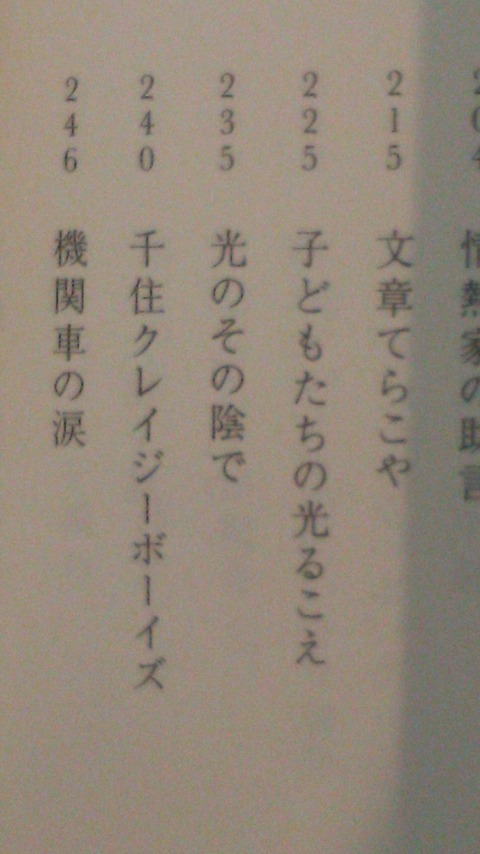 204 情熱家の助言
215 文章てらこや
225 子どもたちの光るこえ
235 光のその陰で
240 千住クレイジーボーイズ
246 機関車の涙